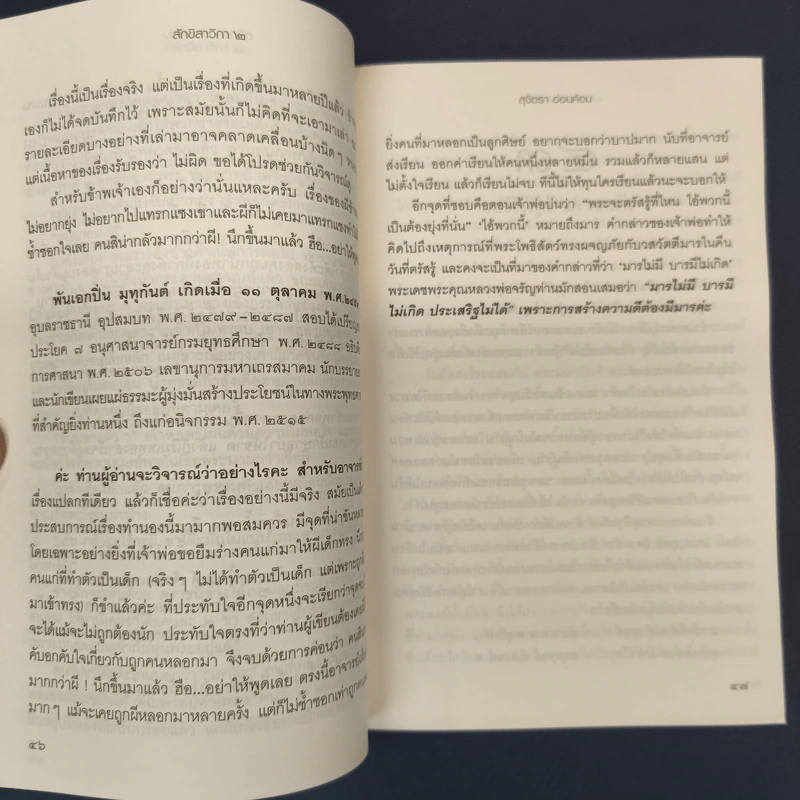 สักขิสาวิกา ๒
เรื่องนี้เป็นเรื่องจริง แต่เป็นเรื่องที่เกิดขึ้นมาหลายปีแล้ว
เองก็ไม่ได้จดบันทึกไว้ เพราะสมัยนั้นก็ไม่คิดที่จะเอามาเล่า
รายละเอียดบางอย่างที่เล่ามาอาจคลาดเคลื่อนบ้างนิดๆ
แต่เนื้อหาของเรื่องรับรองว่า ไม่ผิด ขอได้โปรดช่วยกันวิจารณ์
สำหรับข้าพเจ้าเองก็อย่างว่านั่นแหละครับ เรื่องของผี
ไม่อยากยุ่ง ไม่อยากไปแทรกแซงเขาและผีก็ไม่เคยมาแทรกแซง
ช้ำชอกใจเลย คนสิน่ากลัวมากกว่าผี! นึกขึ้นมาแล้ว ฮือ...อย่าให้พูด
พันเอกปิ่น มุทุกันต์ เกิดเมื่อ ๑๑ ตุลาคม พ.ศ.
อุบลราชธานี อุปสมบท พ.ศ. ๒๔๗๙–๒๔๘๗ สอบได้เปรียญ
ประโยค ๗ อนุศาสนาจารย์กรมยุทธศึกษา พ.ศ. ๒๔๘๘ อธิบดี
การศาสนา พ.ศ. ๒๕๐๖ เลขานุการมหาเถรสมาคม นักบรรยาย
และนักเขียนเผยแผ่ธรรมะผู้มุ่งมั่นสร้างประโยชน์ในทางพระพุทธ
ที่สำคัญยิ่งท่านหนึ่ง ถึงแก่อนิจกรรม พ.ศ. ๒๕๑๕
ค่ะ ท่านผู้อ่านจะวิจารณ์ว่าอย่างไรคะ สำหรับอาจารย์
เรื่องแปลกทีเดียว แล้วก็เชื่อค่ะว่าเรื่องอย่างนี้มีจริง สมัยเป็น
ประสบการณ์เรื่องทำนองนี้มามากพอสมควร มีจุดที่น่าขัน
โดยเฉพาะอย่างยิ่งที่เจ้าพ่อขอยืมร่างคนแก่มาให้ผีเด็กทรง
คนแก่ที่ทำตัวเป็นเด็ก (จริงๆ ไม่ได้ทำตัวเป็นเด็ก แต่เพราะถูก
มาเข้าทรง) ก็ขำแล้วค่ะ ที่ประทับใจอีกจุดหนึ่งจะเรียกว่าจุด
จะได้แม้จะไม่ถูกต้องนัก ประทับใจตรงที่ว่าท่านผู้เขียนต้อง
คับอกคับใจเกี่ยวกับถูกคนหลอกมา จึงจบด้วยการค่อนว่า คน
มากกว่าผี ! นึกขึ้นมาแล้ว ฮือ...อย่าให้พูดเลย ตรงนี้อาจารย์
มากๆ แม้จะเคยถูกผีหลอกมาหลายครั้ง แต่ก็ไม่ช้ำชอกเท่าถูกคน
๔๖
สุจิตรา อ่อนค้อม
ยิ่งคนที่มาหลอกเป็นลูกศิษย์ อยากจะบอกว่าบาปมาก นับที่อาจารย์
ส่งเรียน ออกค่าเรียนให้คนหนึ่งหลายหมื่น รวมแล้วก็หลายแสน แต่
ไม่ตั้งใจเรียน แล้วก็เรียนไม่จบ ทีนี้ไม่ให้ทุนใครเรียนแล้วนะจะบอกให้
อีกจุดที่ชอบคือตอนเจ้าพ่อบ่นว่า “พระจะตรัสรู้ที่ไหน ไอ้พวกนี้
เป็นต้องยุ่งที่นั่น” ‘ไอ้พวกนี้’ หมายถึงมาร คำกล่าวของเจ้าพ่อทำให้
คิดไปถึงเหตุการณ์ที่พระโพธิสัตว์ทรงผจญภัยกับวสวัตตีมารในคืน
วันที่ตรัสรู้ และคงจะเป็นที่มาของคำกล่าวที่ว่า ‘มารไม่มี บารมีไม่เกิด’
พระเดชพระคุณหลวงพ่อจรัญท่านมักสอนเสมอว่า “มารไม่มี บารมี
ไม่เกิด ประเสริฐไม่ได้” เพราะการสร้างความดีต้องมีมารค่ะ
๔๗